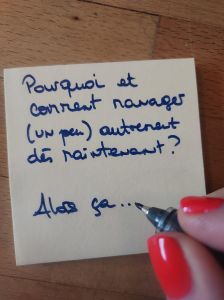 Pourquoi et
comment manager
(un peu) autrement
dès maintenant ?
Alors ça...